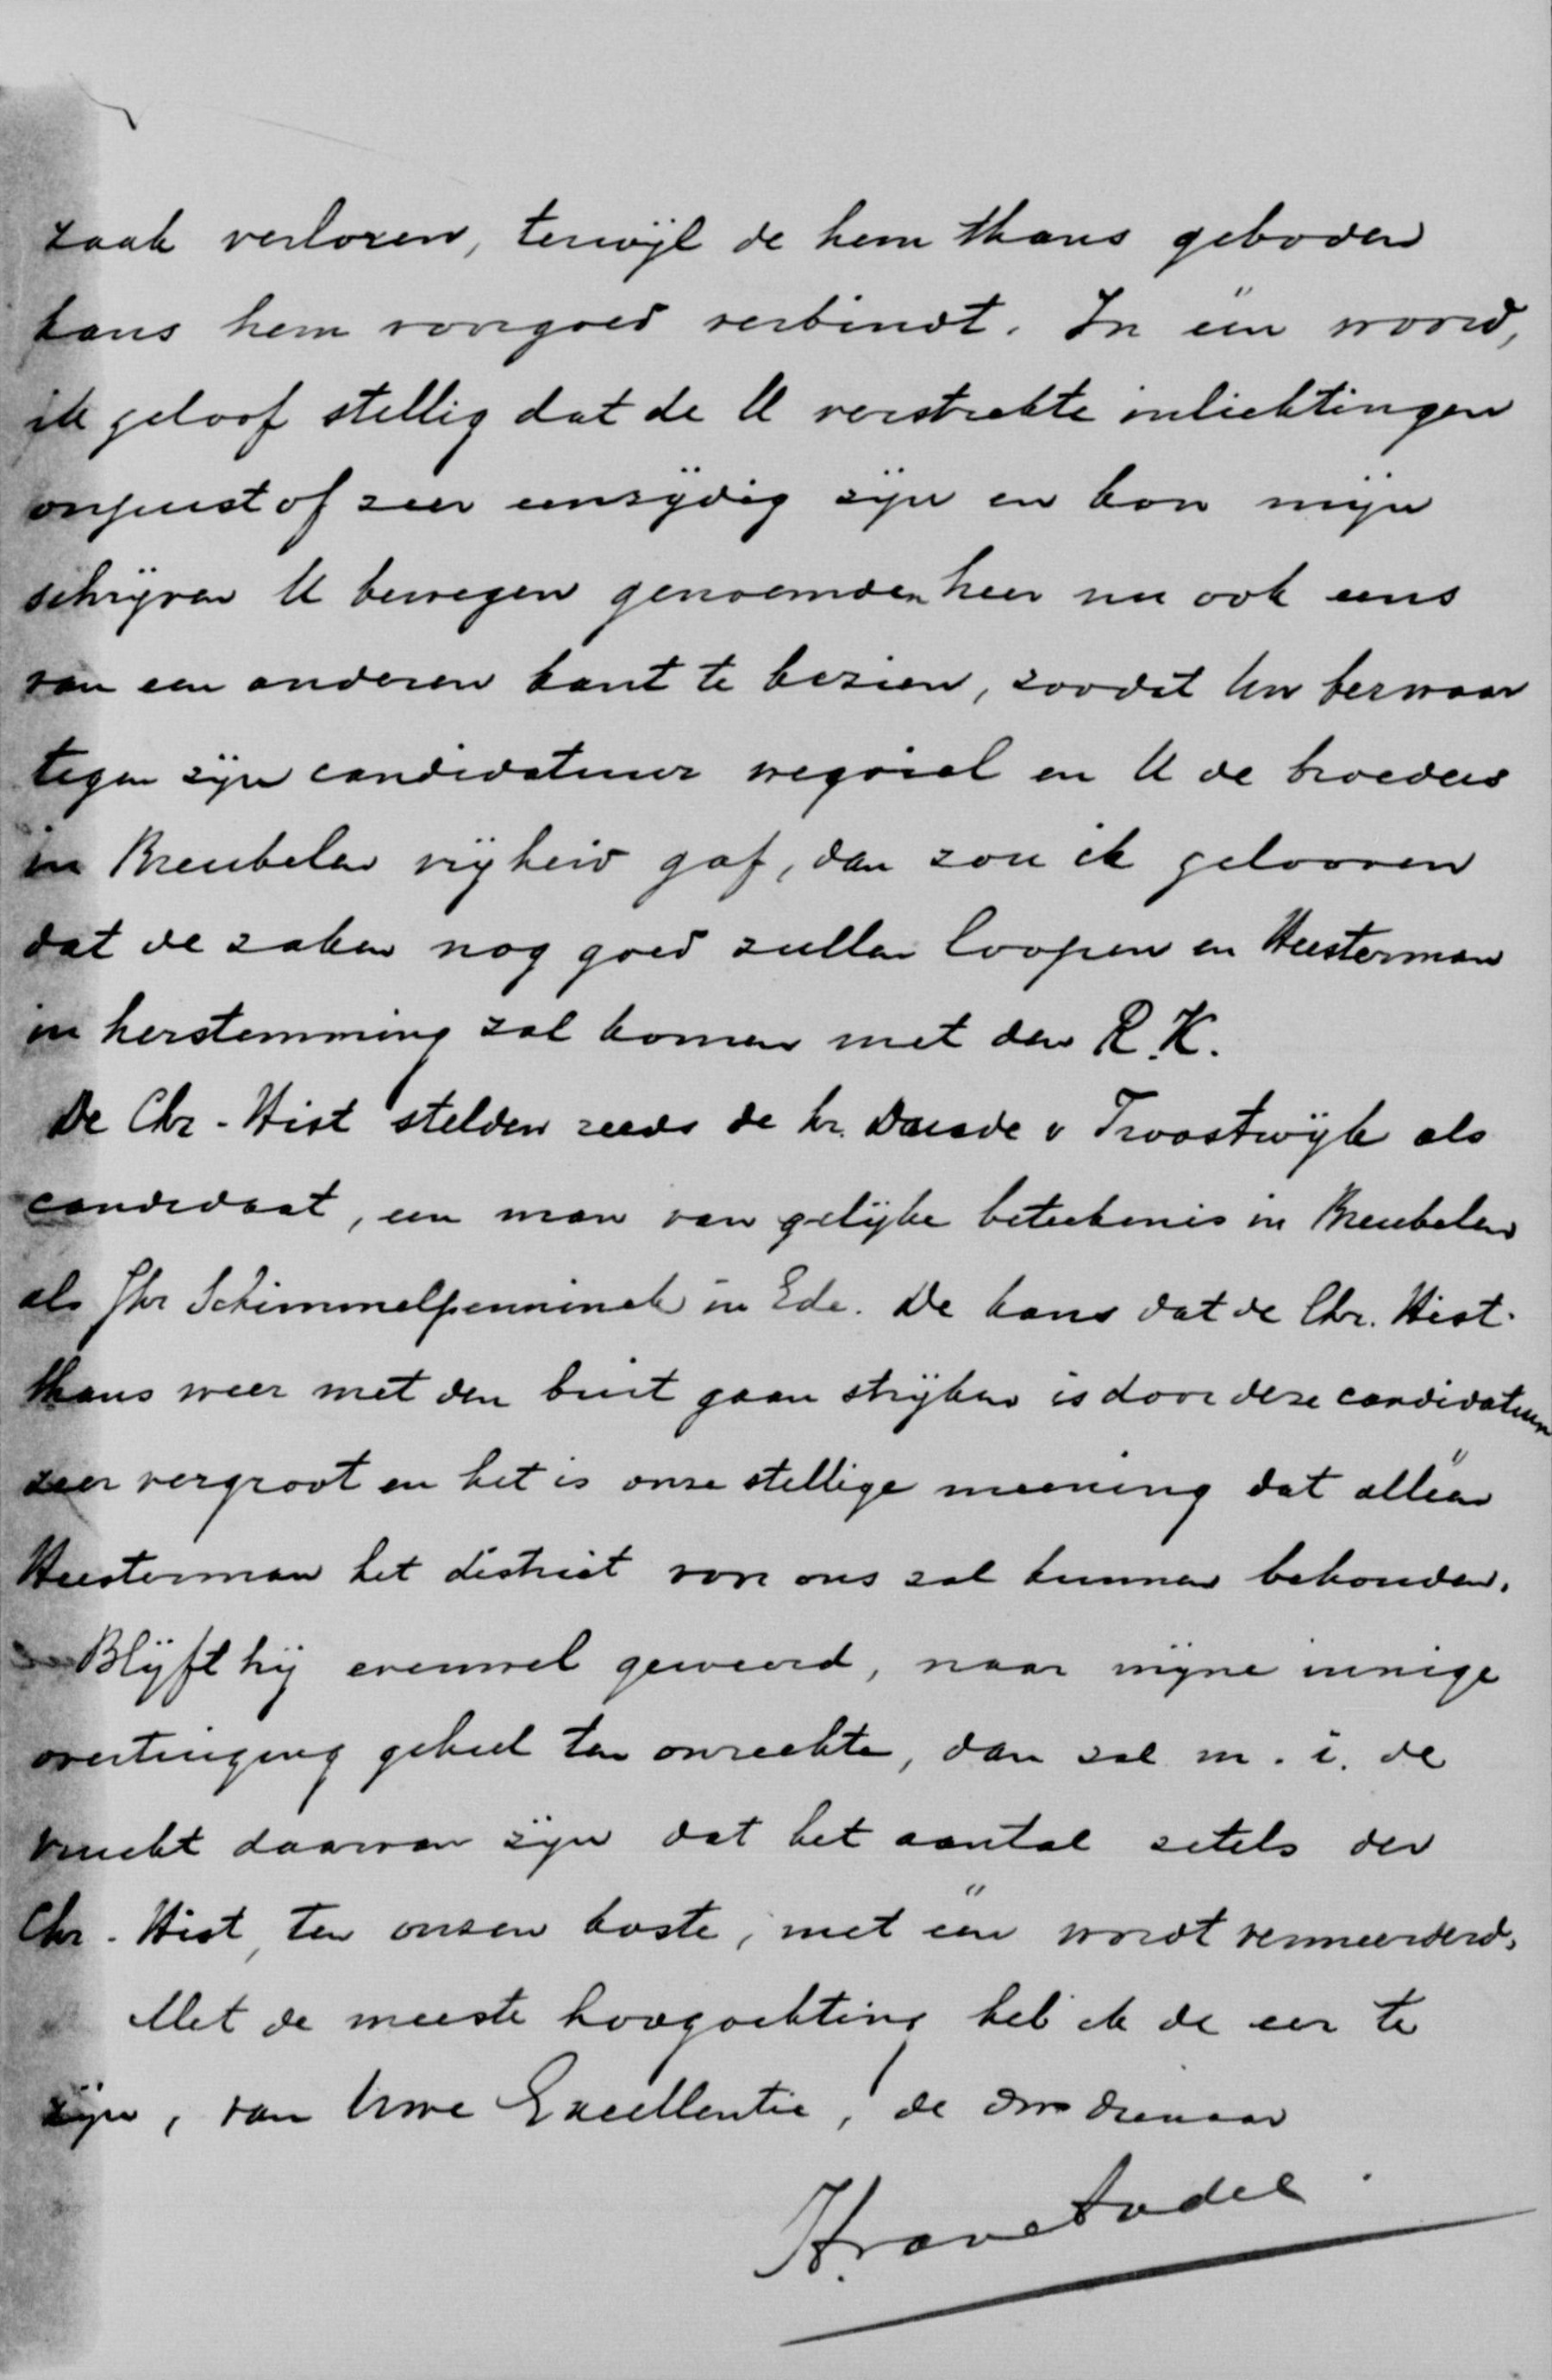 zaak verloren, terwijl de hem thans geboden
kans hem voorgoed verbindt. In één woord,
ik geloof stellig dat de U verstrekte inlichtingen
onjuist of zeer eenzijdig zijn en kon mijn
schrijven U bewegen genoemden heer nu ook eens
van een anderen kant te bezien, zoodat Uw bezwaar
tegen zijn candidatuur wegviel en U de broeders
in Breukelen vrijheid gaf, dan zou ik gelooven
dat de zaken nog goed zullen loopen en Heesterman
in herstemming zal komen met den R.K.
De Chr.-Hist stelden reeds de hr. Duade v Troostwijk als
candidaat, een man van gelijke beteekenis in Breukelen
als Jhr Schimmelpenninck in Ede. De kans dat de Chr. Hist.
thans weer met den buit gaan strijken is door deze candidatuur
zeer vergroot en het is onze stellige meening dat alléén
Heesterman het district voor ons zal kunnen behouden.
Blijft hij evenwel geweerd, naar mijne innige
overtuiging geheel ten onrechte, dan zal m. i. de
vrucht daarvan zijn dat het aantal zetels der
Chr. Hist, ten onzen koste, met één wordt vermeerderd.
Met de meeste hoogachting heb ik de eer te
zijn, van Uwe Excellentie, de dw dienaar